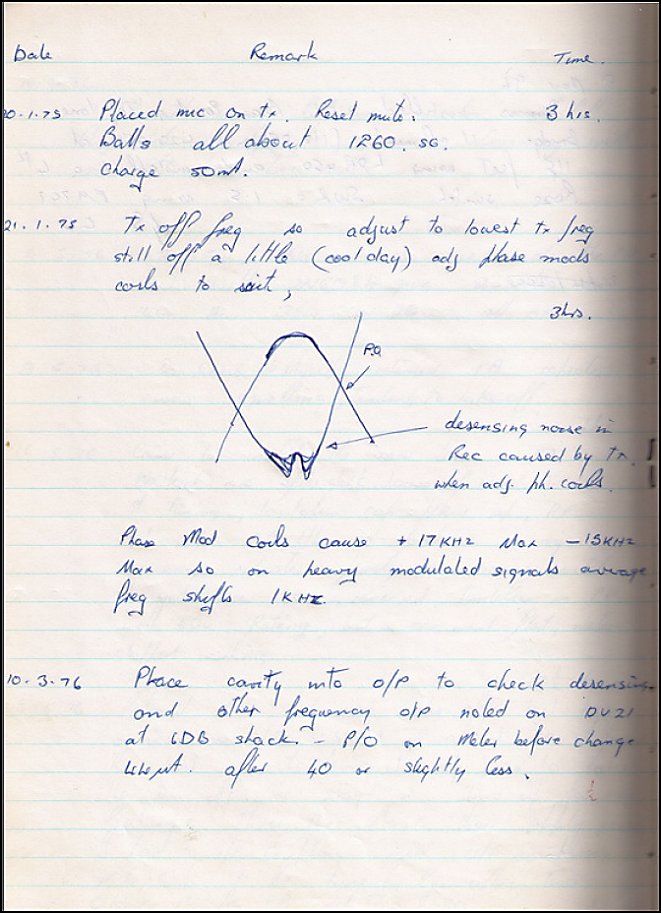 Date Remark Time.
20.1.75 Placed mic on tx. Reset mute. 3 hrs.
Batts all about 1260. SG.
Charge 50mA.
21.1.75 Tx off freq so adjust to lowest tx freq
still off a little (cool day) adj phase mods
coils to suit,
3hrs.
P.O
desensing noise in
Rec caused by tx.
when adj. ph. coils.
Phase Mod coils cause + 17KHz Max - 15KHz
Max so on heavy modulated signals average
freq shifts 1KHz.
10.3.76 Place cavity into o/p to check desensing
and other frequency o/p noted on
at 6DB shack - P/O on Meter before change
after 40 or slightly less.